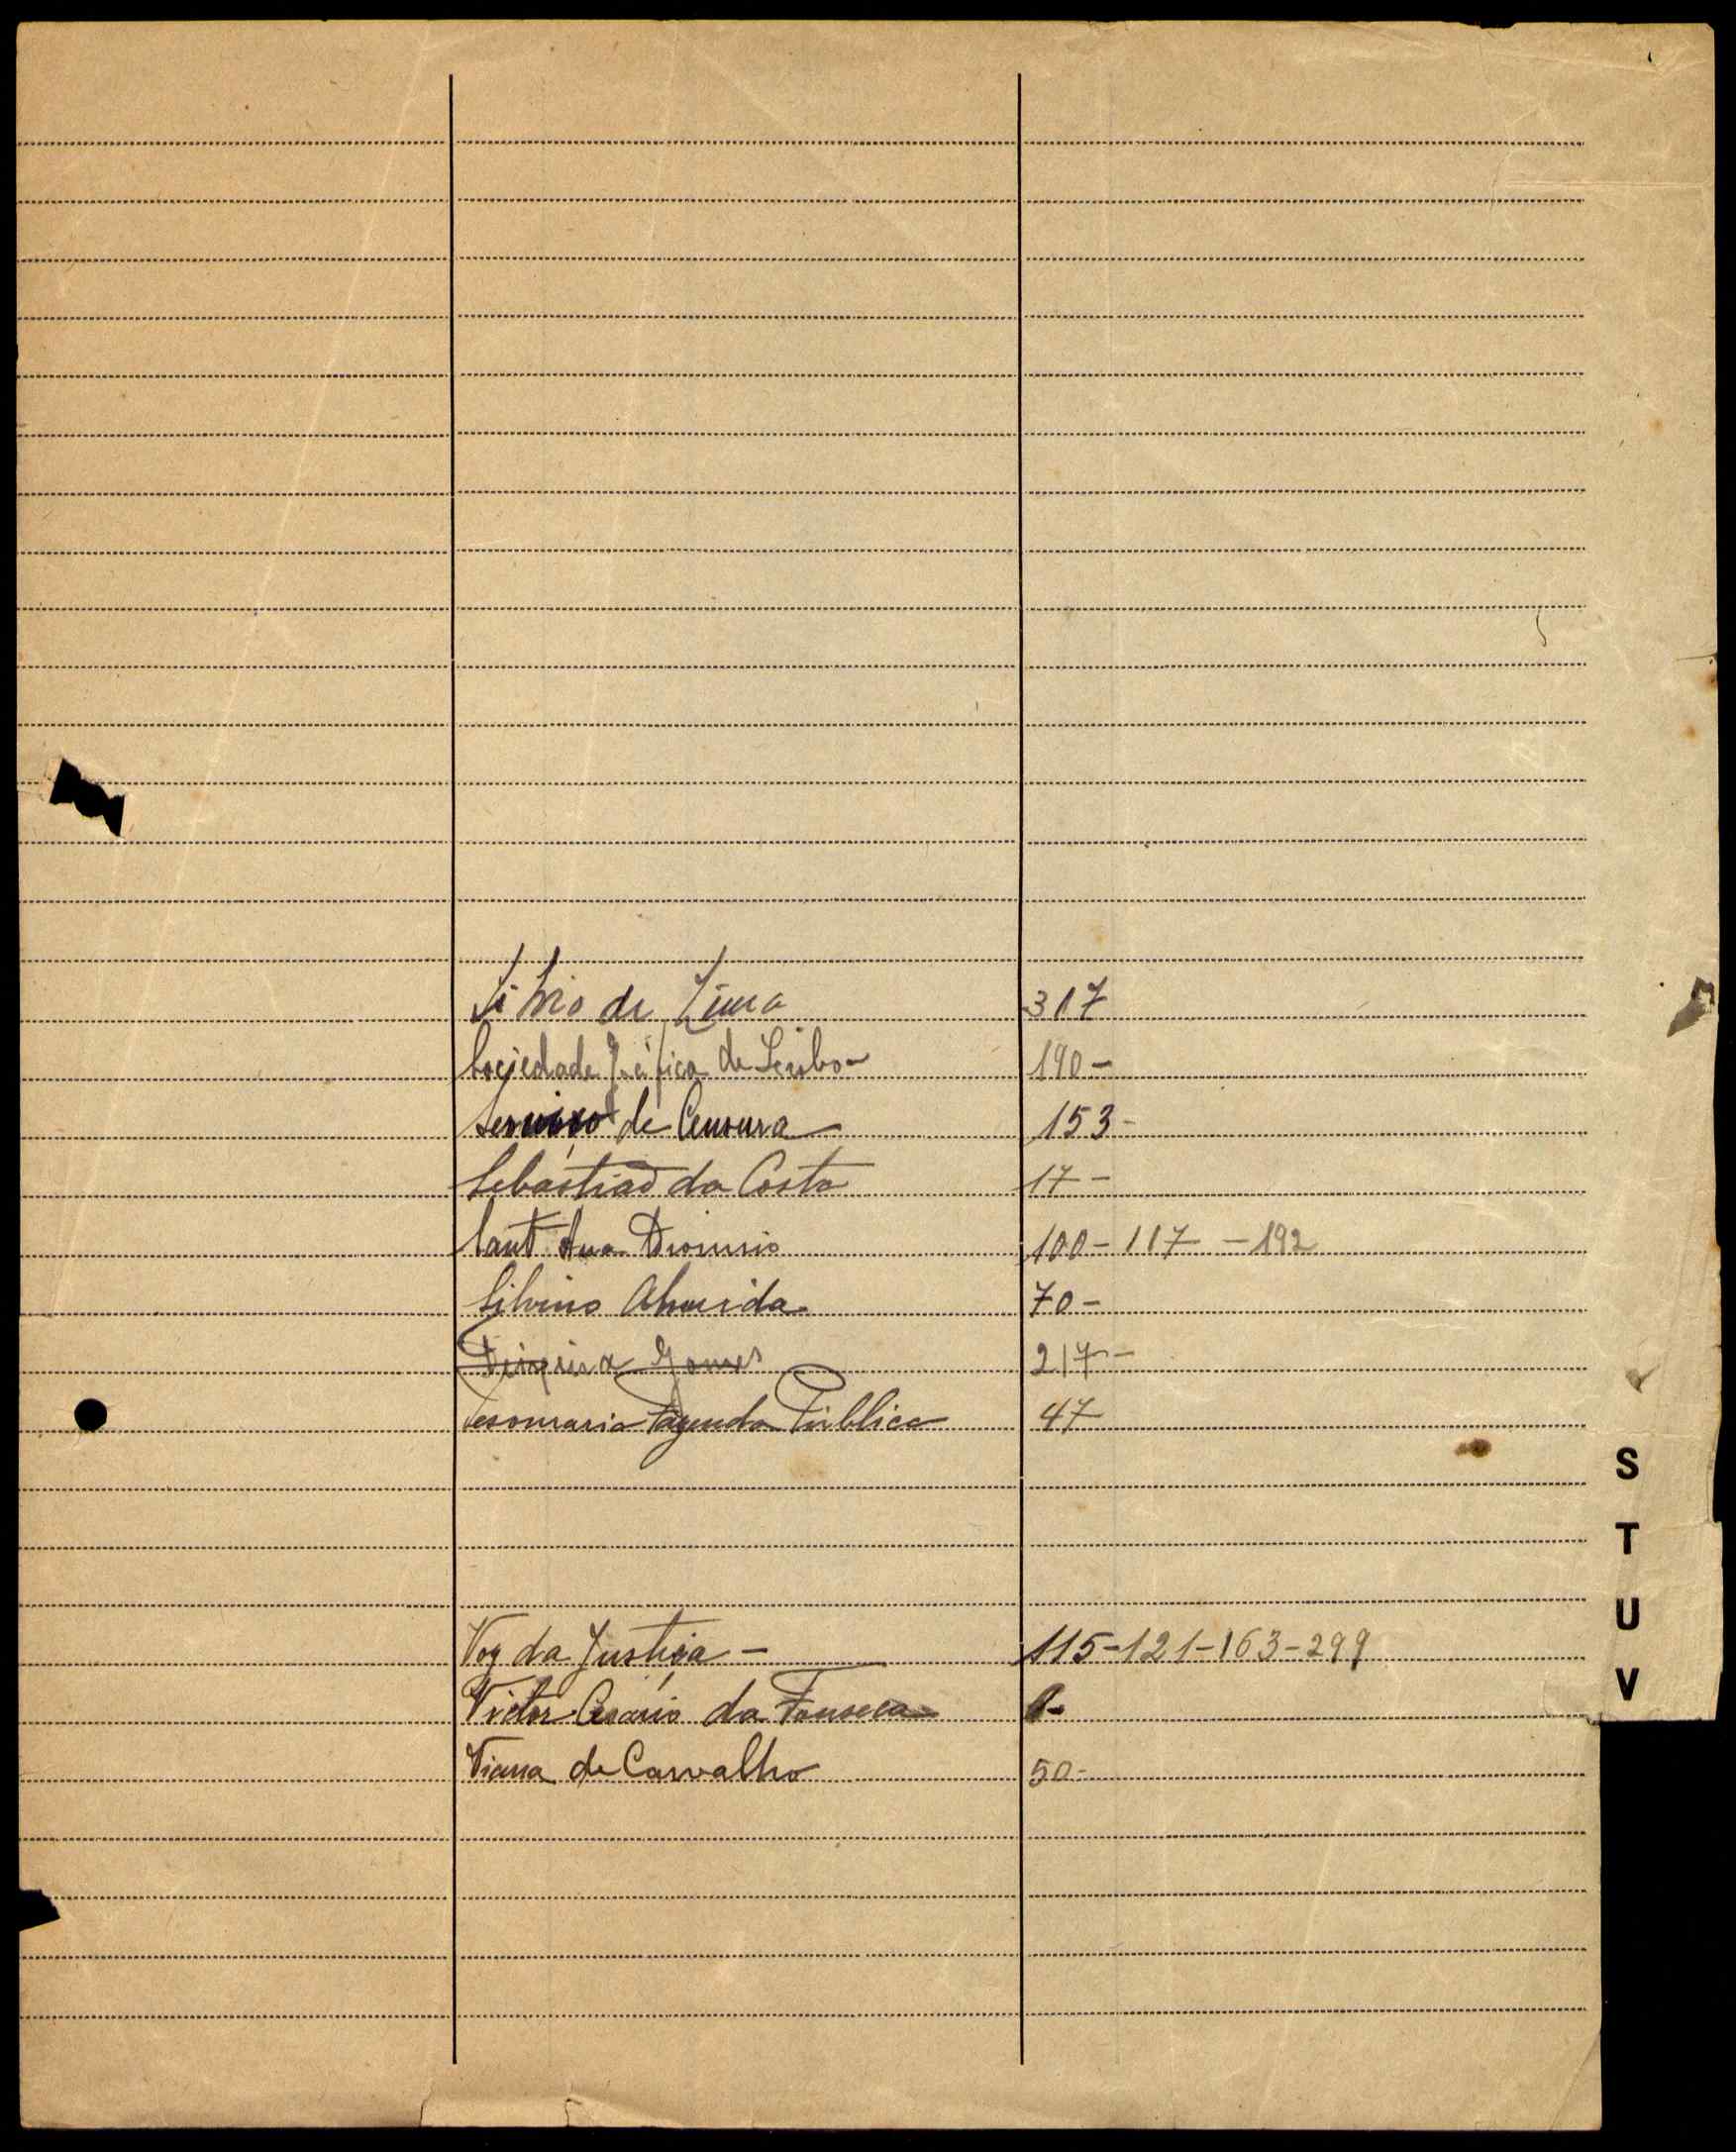 Sílvio de Lima 317
Sociedade Gráfica de Lisboa 190-
Serviço de Censura 153-
Sebastião da Costa 17-
Sant'Ana Dionísio 100-117-192
Silvino Almeida 70-
Gomes 217-
Tesouraria Fazenda Pública 47
S
T
U
Voz da Justiça - 115-121-163-299
V
Victor Cesário da Fonseca
Viana de Carvalho 50-